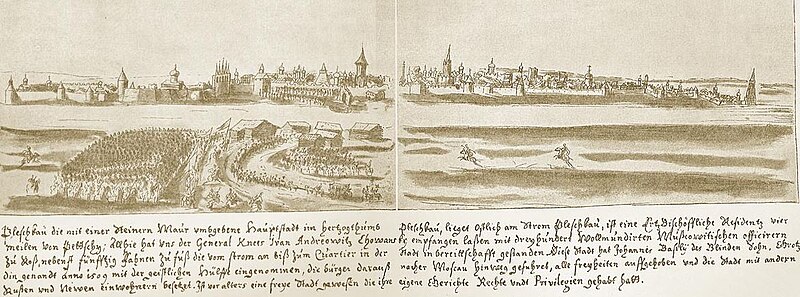 Pleschkau die mit einer steinern Maur umbgebene Hauptstadt im Hertzogthumb Pleschkau, lieget östlich am Strom Pleschkau, ist eine Ertz Bischöffliche Residentz vier
meilen von Petschur; Allhie hat uns der General Knees Ivan Andreowitz Chowansky empfangen lassen mit dreyhundert Wollmundirten Muscowitischen officirern
zu Roß, nebenst fünfftzig Fahnen zu fuß die vom strom an biß zum Quartier in der Stadt in bereitschafft gestanden. Diese Stadt hat Johannes Basily des Blinden Sohn,
din genandt anno 1509 mit der geistlichen Hülffe eingenommen, die bürger darauß nacher Moscau hinweg geführet, alle freyheiten auffgehoben und die Stadt mit andern
Rußen und Newen einwohnern besetzet. Ist vor alters eine freye Stadt gewesen die ihre eigene Gerichte Rechte undt Privilegien gehabt hatt.